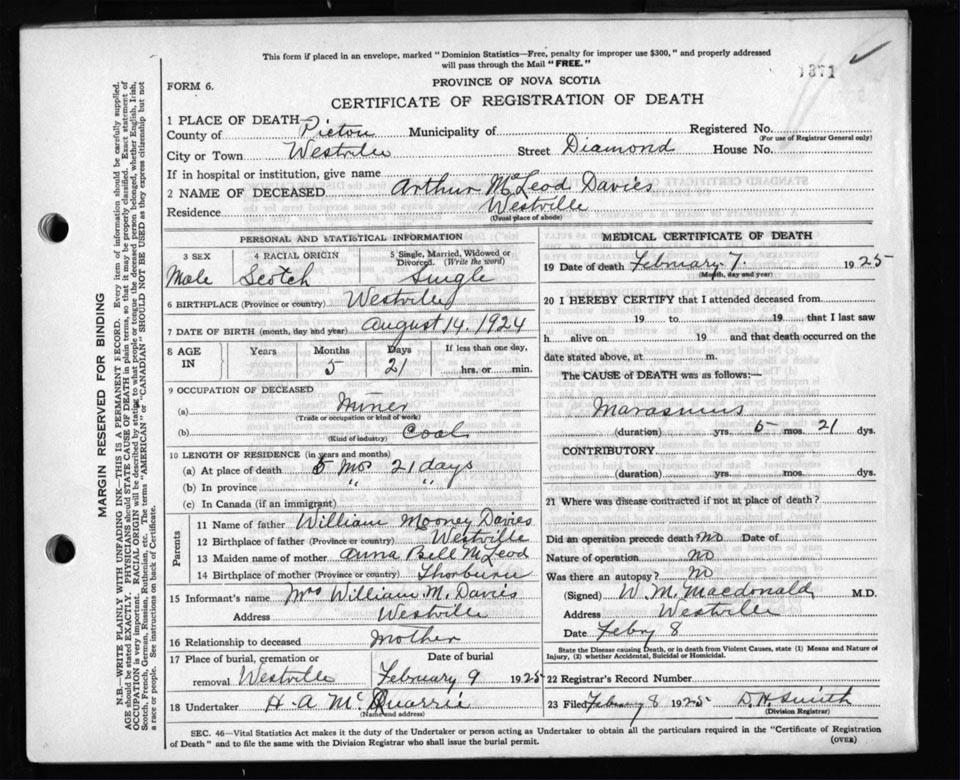 This form if placed in an envelope, marked "Dominion Statistics—Free, penalty for improper use $300," and properly addressed
will pass through the Mail "FREE."
1371
PROVINCE OF NOVA SCOTIA
FORM 6.
CERTIFICATE OF REGISTRATION OF DEATH
1 PLACE OF DEATH—
County of Pictou Municipality of Registered No.
(For use of Registrar General only)
City or Town Westville Street Diamond House No.
If in hospital or institution, give name
2 NAME OF DECEASED Arthur McLeod Davies
Residence Westville
(Usual place of abode)
PERSONAL AND STATISTICAL INFORMATION
3 SEX 4 RACIAL ORIGIN 5 Single, Married, Widowed or
Divorced. (Write the word)
Male Scotch Single
6 BIRTHPLACE (Province or country) Westville
7 DATE OF BIRTH (month, day and year) August 14. 1924
8 AGE IN Years Months Days If less than one day,
5 21 hrs. or min.
9 OCCUPATION OF DECEASED
(a) Miner
(Trade or occupation or kind of work)
(b) Coal
(Kind of industry)
10 LENGTH OF RESIDENCE (in years and months)
(a) At place of death 5 Mos 21 days
(b) In province " "
(c) In Canada (if an immigrant)
Parents
11 Name of father William Mooney Davies
12 Birthplace of father (Province or country) Westville
13 Maiden name of mother Anna Bell McLeod
14 Birthplace of mother (Province or country) Thorburn
15 Informant's name Mrs William M. Davies
Address Westville
16 Relationship to deceased Mother
17 Place of burial, cremation or Date of burial
removal Westville February 9 1925
18 Undertaker H. A. McQuarrie
(Name and address)
MEDICAL CERTIFICATE OF DEATH
19 Date of death February 7. 1925
(Month, day and year)
20 I HEREBY CERTIFY that I attended deceased from
19 to 19 that I last saw
h alive on 19 and that death occurred on the
date stated above, at m.
The CAUSE of DEATH was as follows:—
Marasmus
(duration) yrs. 5 mos. 21 dys.
CONTRIBUTORY
(duration) yrs. mos. dys.
21 Where was disease contracted if not at place of death?
Did an operation precede death? No Date of
Nature of operation No
Was there an autopsy? No
(Signed) W. M. Macdonald M.D.
Address Westville
Date Febry 8
State the Disease causing Death, or in death from Violent Causes, state (1) Means and Nature of
Injury, (2) whether Accidental, Suicidal or Homicidal.
22 Registrar's Record Number
23 Filed February 8 1925 D. H. Smith
(Division Registrar)
SEC. 46—Vital Statistics Act makes it the duty of the Undertaker or person acting as Undertaker to obtain all the particulars required in the "Certificate of Registration
of Death" and to file the same with the Division Registrar who shall issue the burial permit.
(OVER)
MARGIN RESERVED FOR BINDING
N.B.—WRITE PLAINLY WITH UNFADING INK—THIS IS A PERMANENT RECORD. Every item of information should be carefully supplied.
AGE should be stated EXACTLY. PHYSICIANS should STATE CAUSE OF DEATH in plain terms, so that it may be properly classified. Exact statement of
OCCUPATION is very important. RACIAL ORIGIN will be described by stating to what people or tongue the deceased person belonged, whether English, Irish,
Scotch, French, German, Russian, Ruthenian, etc. The terms "AMERICAN" or "CANADIAN" SHOULD NOT BE USED as they express citizenship but not
a race or people. See instructions on back of Certificate.